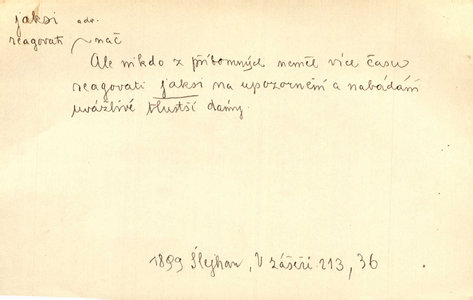 jaksi adv.
reagovati ~ nač
Ale nikdo z přítomných neměl více času
reagovati jaksi na upozornění a nabádání
uvážlivé tlustší dámy.
1899 Šlejhar, V zášeří 213, 36